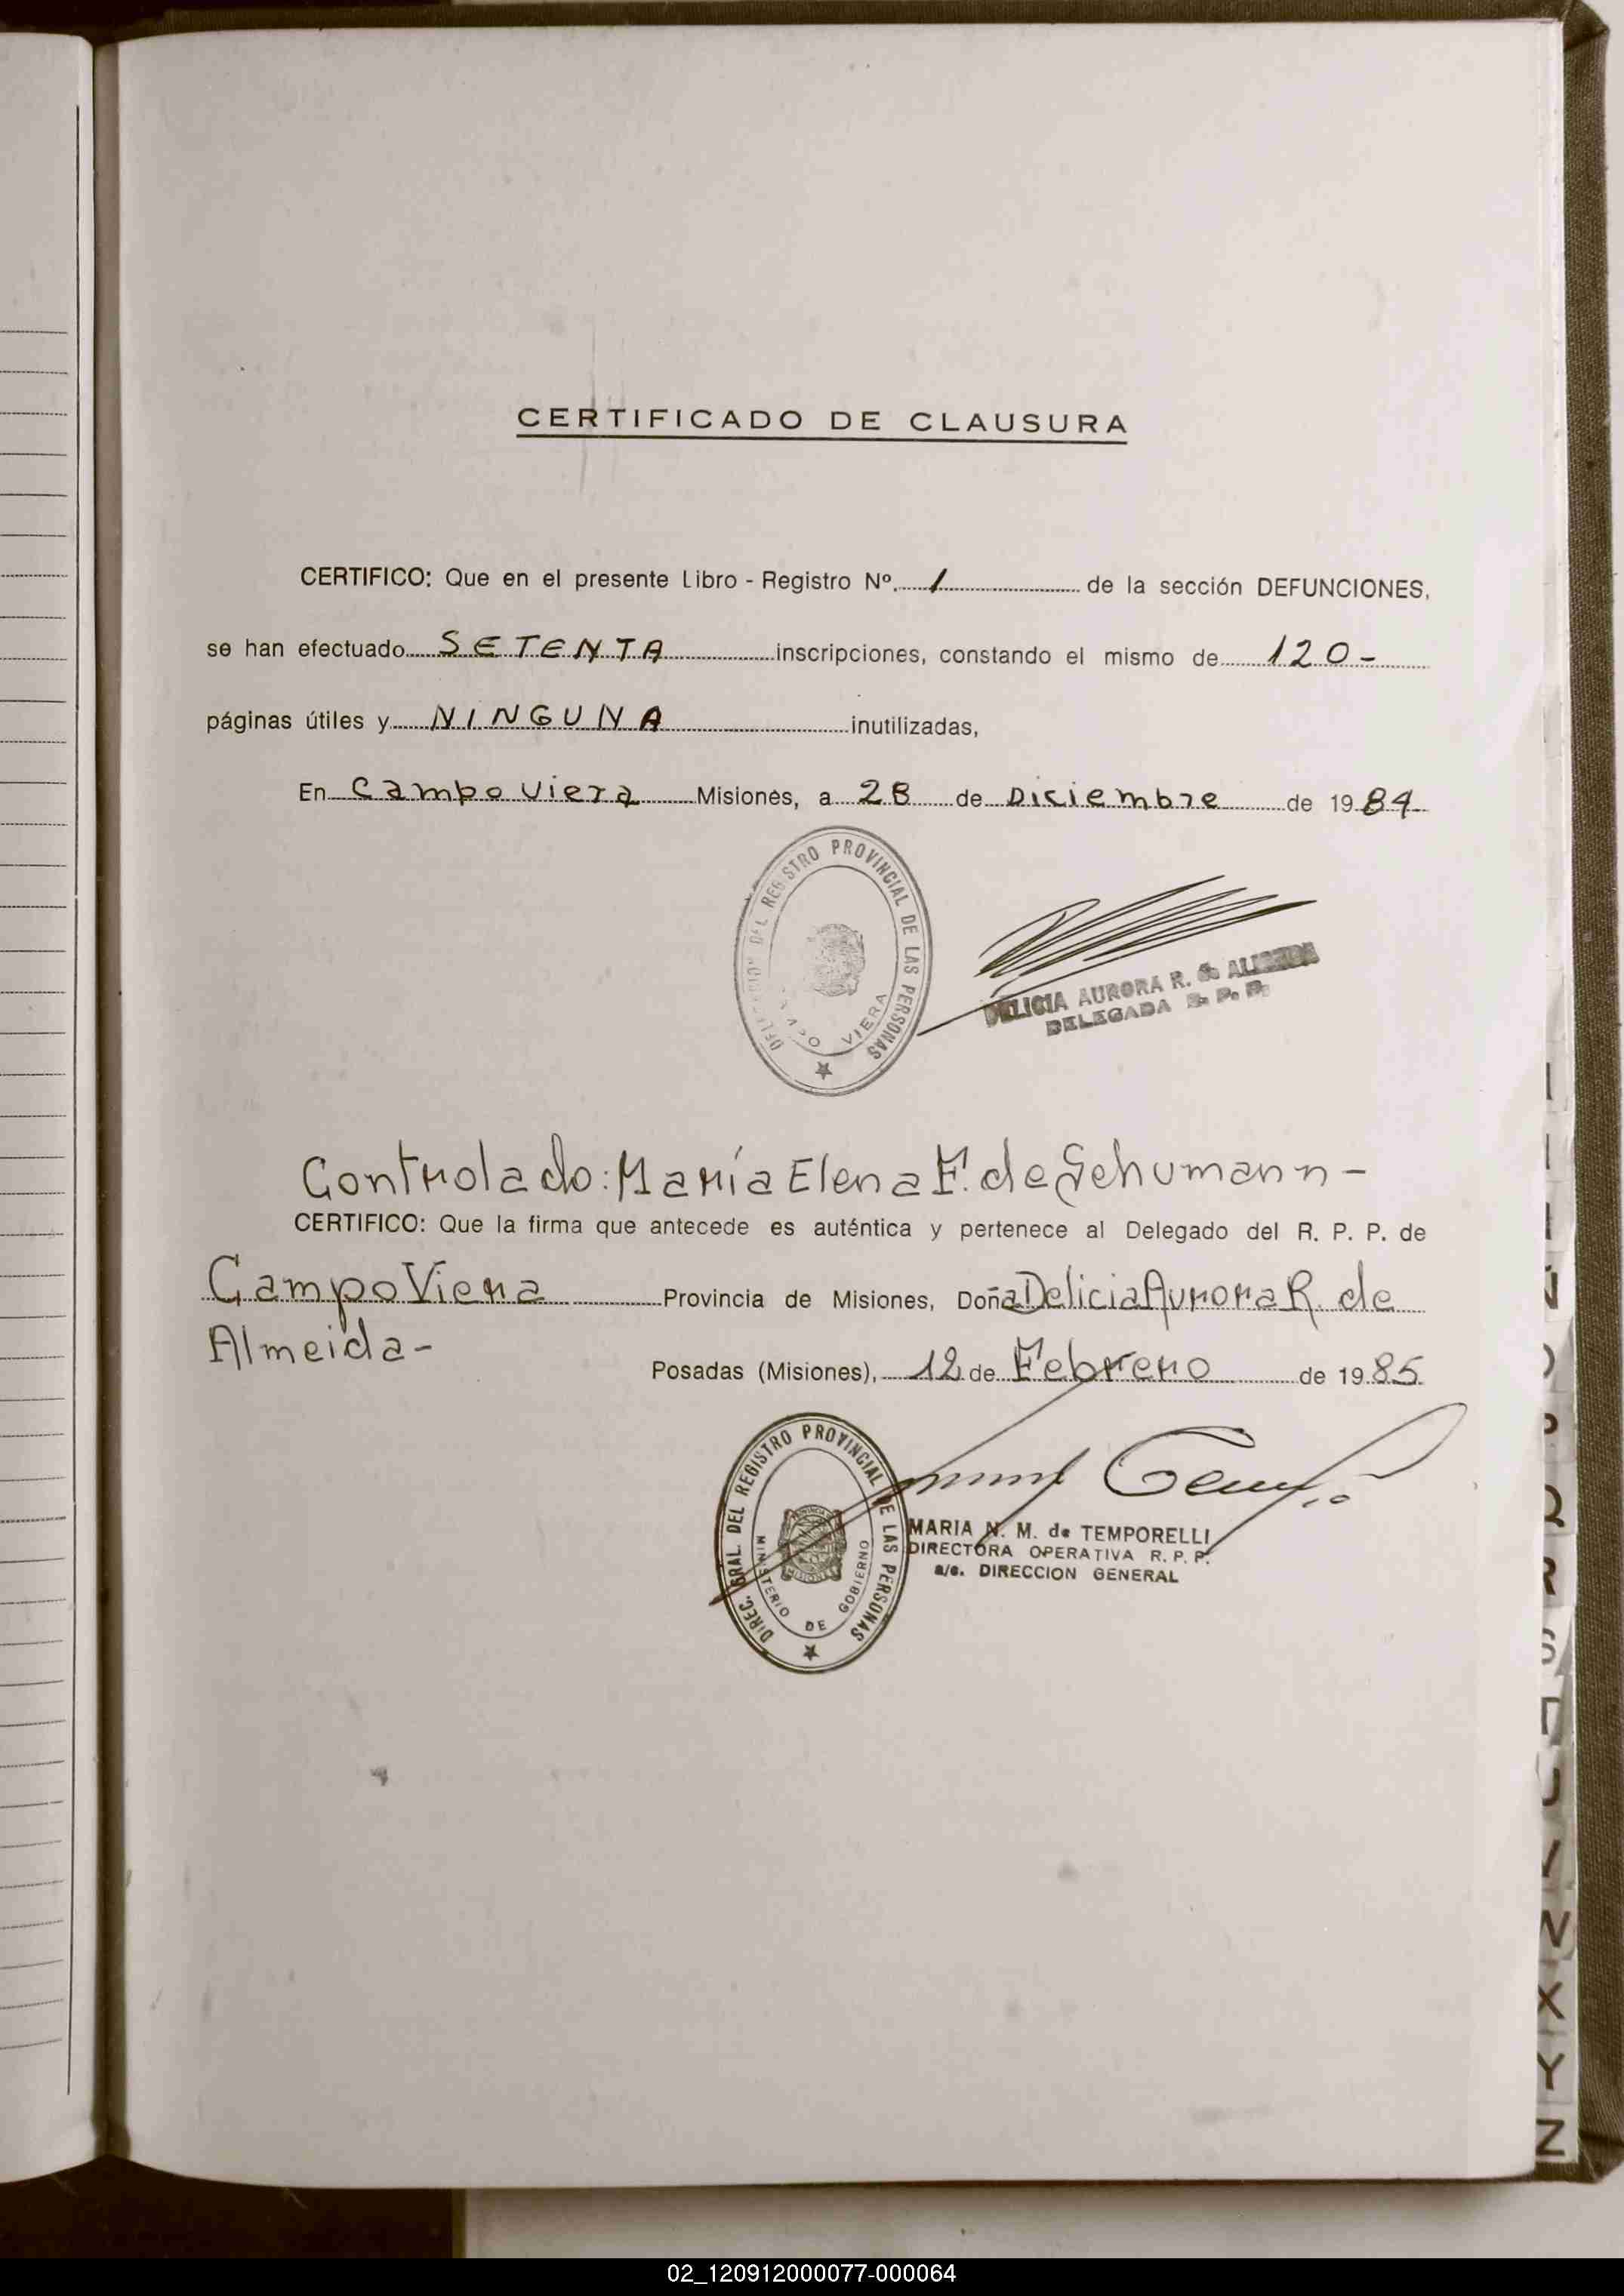 CERTIFICADO DE CLAUSURA
CERTIFICO: Que en el presente Libro - Registro Nº. 1 de la sección DEFUNCIONES,
se han efectuado SETENTA inscripciones, constando el mismo de 120-
páginas útiles y NINGUNA inutilizadas,
En Campo Viera Misiones, a 28 de Diciembre de 1984
DELEGACION DEL REGISTRO PROVINCIAL DE LAS PERSONAS
CAMPO VIERA
DELICIA AURORA R. de ALMEIDA
DELEGADA R. P. P.
Controlado: María Elena F. de Schumann-
CERTIFICO: Que la firma que antecede es auténtica y pertenece al Delegado del R. P. P. de
Campo Viera Provincia de Misiones, Doña Delicia Aurora R. de
Almeida-
Posadas (Misiones), 12 de Febrero de 1985
DIREC. GRAL. DEL REGISTRO PROVINCIAL DE LAS PERSONAS
MINISTERIO DE GOBIERNO
MARIA N. M. de TEMPORELLI
DIRECTORA OPERATIVA R. P. P.
a/c. DIRECCION GENERAL
Ñ
O
P
Q
R
S
T
U
V
W
X
Y
Z
02_120912000077-000064